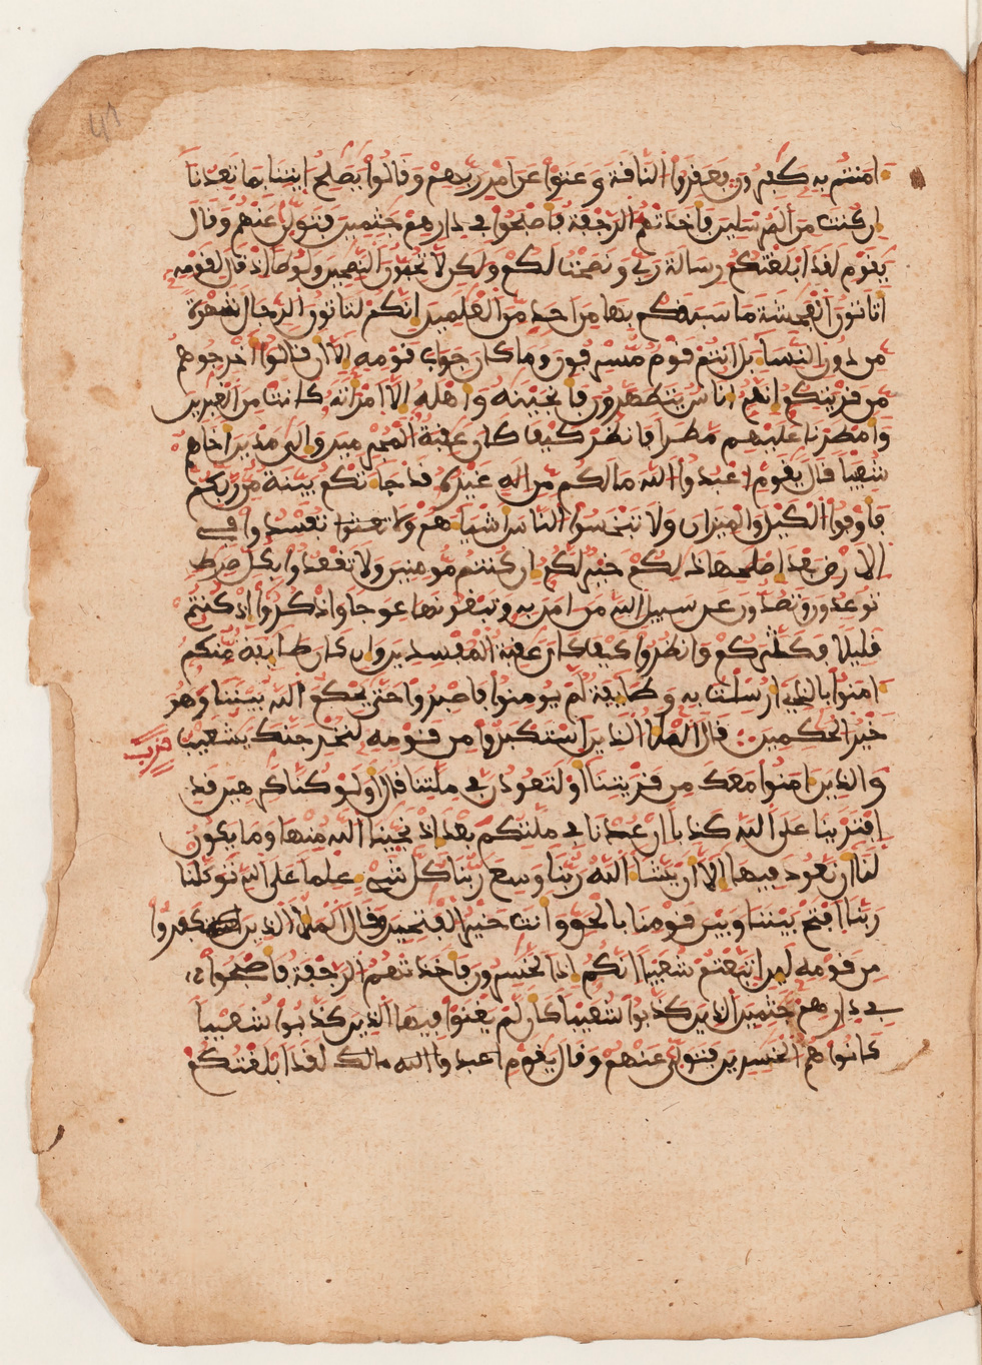 امنتم به كفرون فعقروا الناقة وعتوا عن امر ربهم وقالوا يصلح ايتنا بما تعدنا
ان كنت من المرسلين فاخذتهم الرجفة فاصبحوا في دارهم جثمين فتولى عنهم وقال
يقوم لقد ابلغتكم رسالة ربي ونصحت لكم ولكن لا تحبون النصحين ولوطا اذ قال لقومه
اتاتون الفحشة ما سبقكم بها من احد من العلمين انكم لتاتون الرجال شهوة
من دون النساء بل انتم قوم مسرفون وما كان جواب قومه الا ان قالوا اخرجوهم
من قريتكم انهم اناس يتطهرون فانجينه واهله الا امراته كانت من الغبرين
وامطرنا عليهم مطرا فانظر كيف كان عقبة المجرمين والى مدين اخاهم
شعيبا قال يقوم اعبدوا الله ما لكم من اله غيره قد جاتكم بينة من ربكم
فاوفوا الكيل والميزان ولا تبخسوا الناس اشياهم ولا تفسدوا في
الارض بعد اصلحها ذلكم خير لكم ان كنتم مومنين ولا تقعدوا بكل صرط
توعدون وتصدون عن سبيل الله من امن به وتبغونها عوجا واذكروا اذ كنتم
قليلا فكثركم وانظروا كيف كان عقبة المفسدين وان كان طايفة منكم
امنوا بالذي ارسلت به وطايفة لم يومنوا فاصبروا حتى يحكم الله بيننا وهو
خير الحكمين قال الملا الذين استكبروا من قومه لنخرجنك يشعيب حزب
والذين امنوا معك من قريتنا او لتعودن في ملتنا قال اولو كنا كرهين قد
افترينا على الله كذبا ان عدنا في ملتكم بعد اذ نجينا الله منها وما يكون
لنا ان نعود فيها الا ان يشا الله ربنا وسع ربنا كل شيء علما على الله توكلنا
ربنا افتح بيننا وبين قومنا بالحق وانت خير الفتحين وقال الملا الذين كفروا
من قومه لين اتبعتم شعيبا انكم اذا لخسرون فاخذتهم الرجفة فاصبحوا
في دارهم جثمين الذين كذبوا شعيبا كان لم يغنوا فيها الذين كذبوا شعيبا
كانوا هم الخسرين فتولى عنهم وقال يقوم اعبدوا الله مالك لقد ابلغتكم